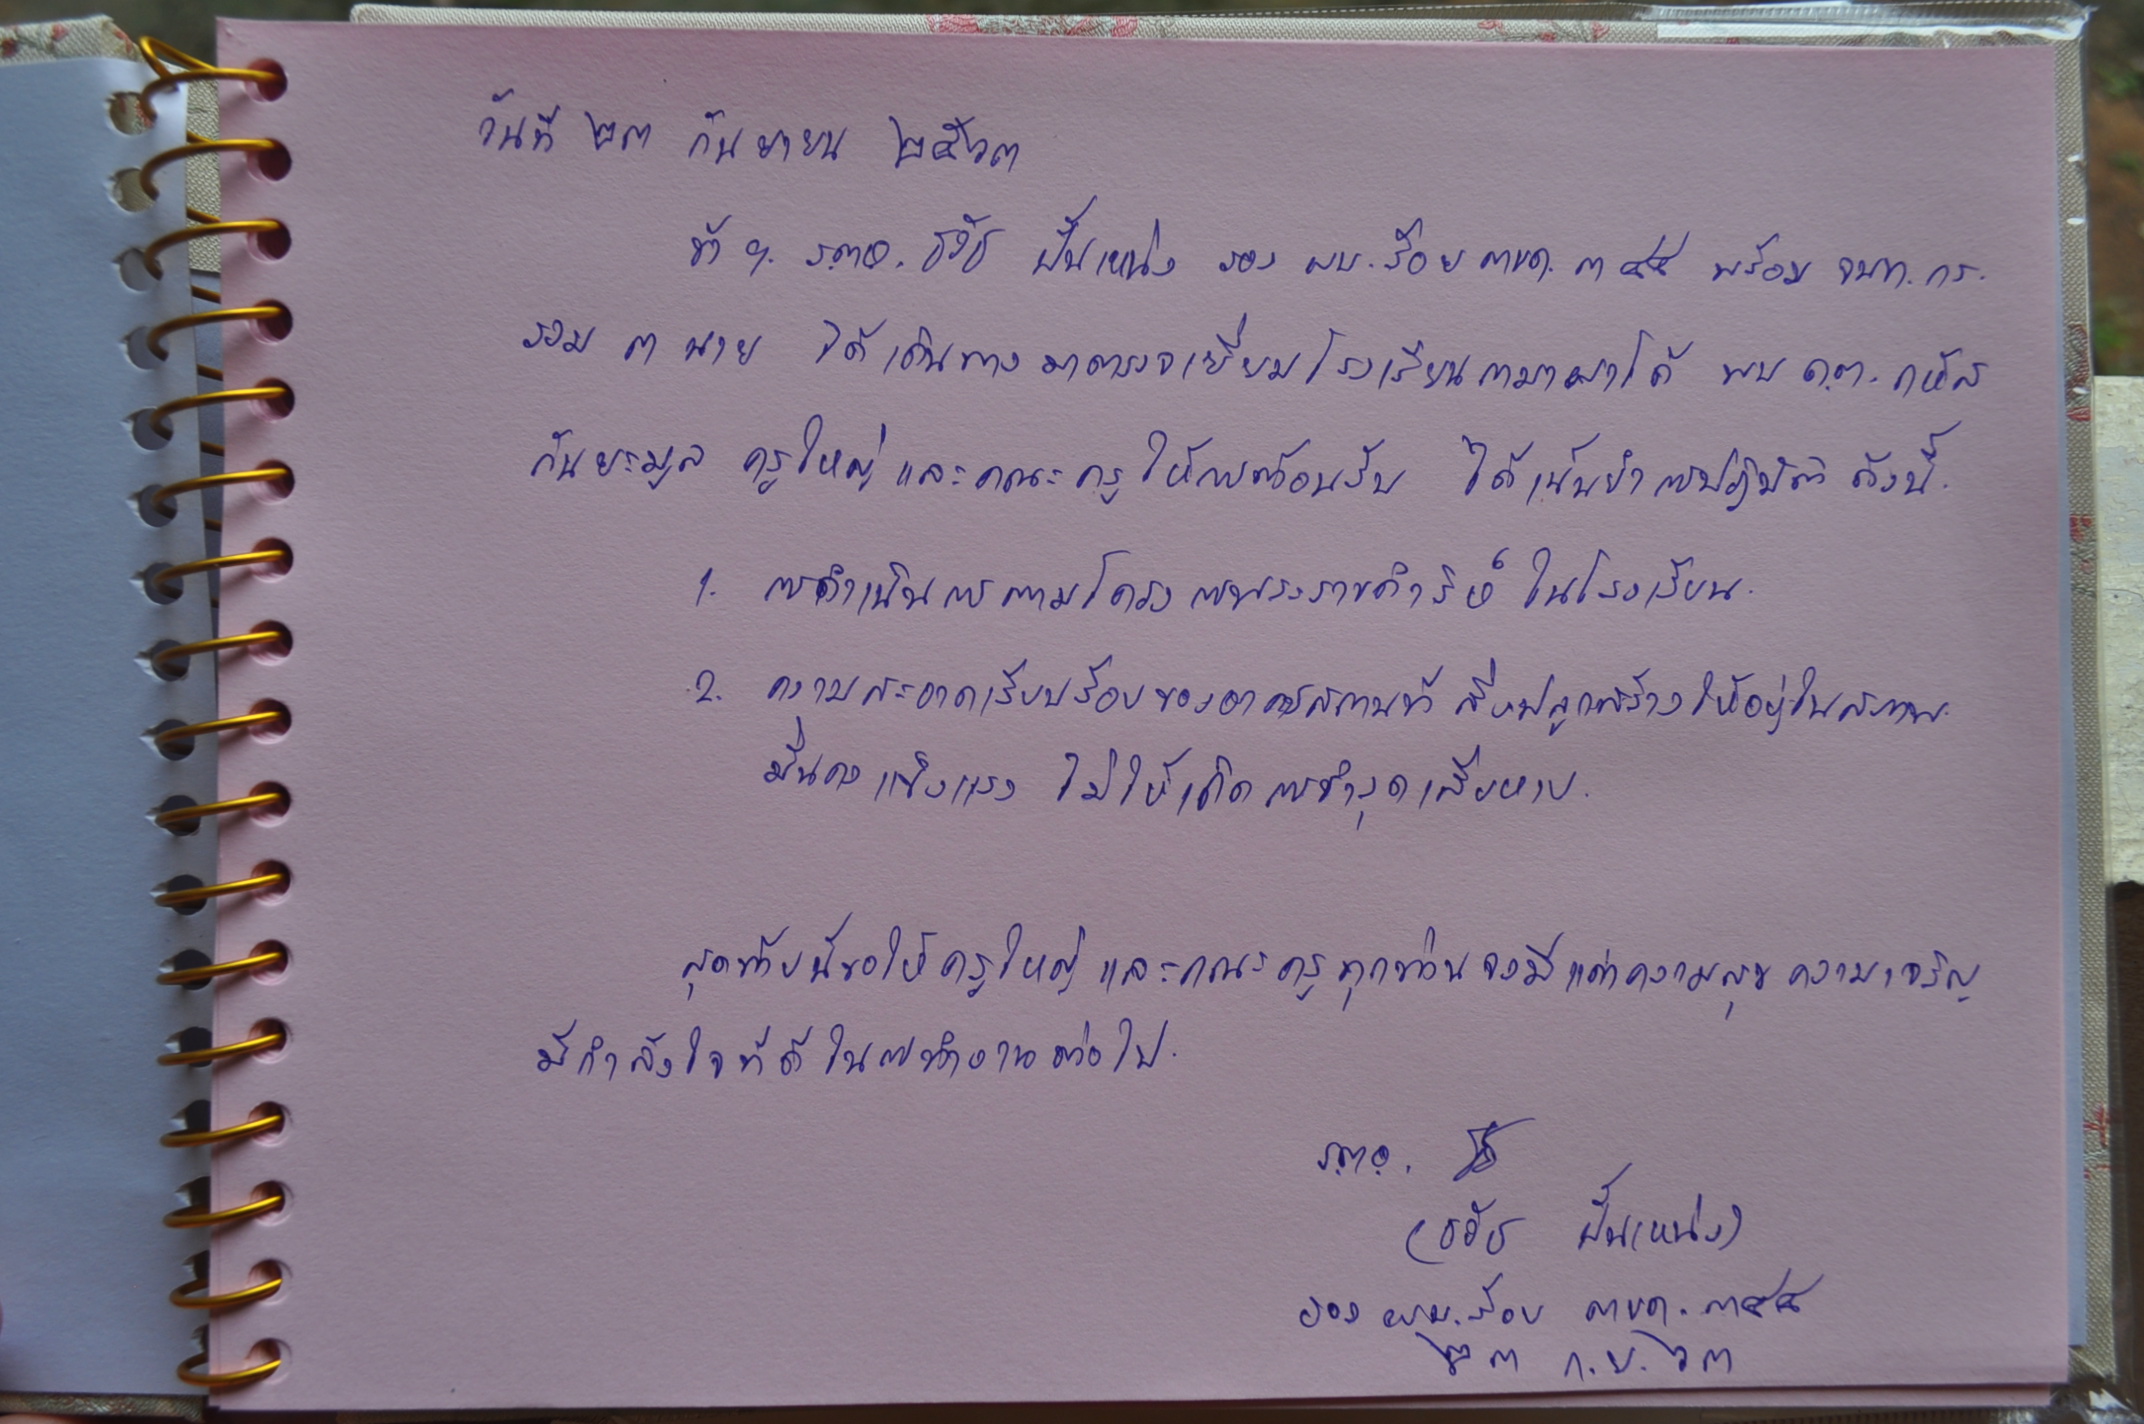 วันที่ ๒๓ กันยายน ๒๕๖๓
ข้า ฯ. ร.ต.อ. ธวัช ปั้นเหน่ง รอง ผบ.ร้อย ตชด. ๓๔๔ พร้อม จนท. กร.
รวม ๓ นาย ได้เดินทางมาตรวจเยี่ยมโรงเรียน พบ ด.ต.
กันยะมูล ครูใหญ่ และคณะครู ให้การต้อนรับ ได้เน้นย้ำการปฏิบัติ ดังนี้.
1. การดำเนินการตามโครงการพระราชดำริห์ ในโรงเรียน.
2. ความสะอาดเรียบร้อยของอาคารสถานที่ สิ่งปลูกสร้าง ให้อยู่ในสภาพ
มั่นคงแข็งแรง ไม่ให้เกิดการชำรุดเสียหาย.
สุดท้ายนี้ขอให้ครูใหญ่ และคณะครูทุกท่าน จงมีแต่ความสุข ความเจริญ
มีกำลังใจที่ดี ในการทำงานต่อไป.
ร.ต.อ.
(ธวัช ปั้นเหน่ง)
รอง ผบ.ร้อย ตชด. ๓๔๔
๒๓ ก.ย. ๖๓